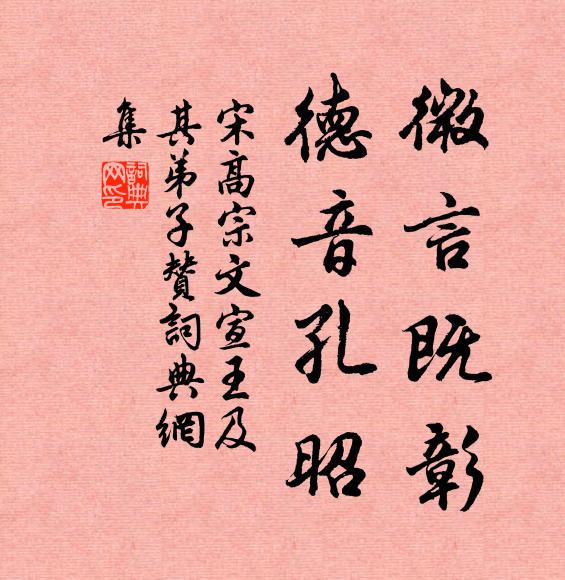 微言既彰
德音孔昭
宋高宗文宣王及
其弟子贊詞典網
集
詞典
网印